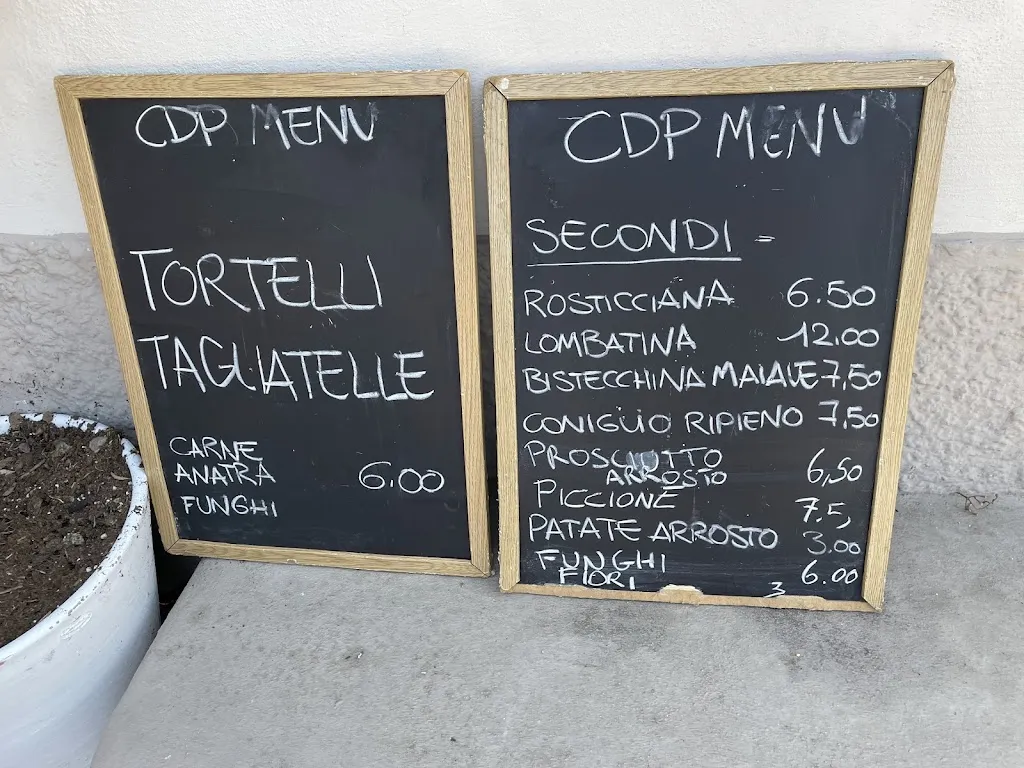 CDP MENU
TORTELLI
TAGLIATELLE
CARNE
ANATRA 6.00
FUNGHI
CDP MENU
SECONDI =
ROSTICCIANA 6.50
LOMBATINA 12.00
BISTECCHINA MAIALE 7,50
CONIGLIO RIPIENO 7,50
PROSCIUTTO
ARROSTO 6,50
PICCIONE 7.5,
PATATE ARROSTO 3.00
FUNGHI 6.00
FIORI 3